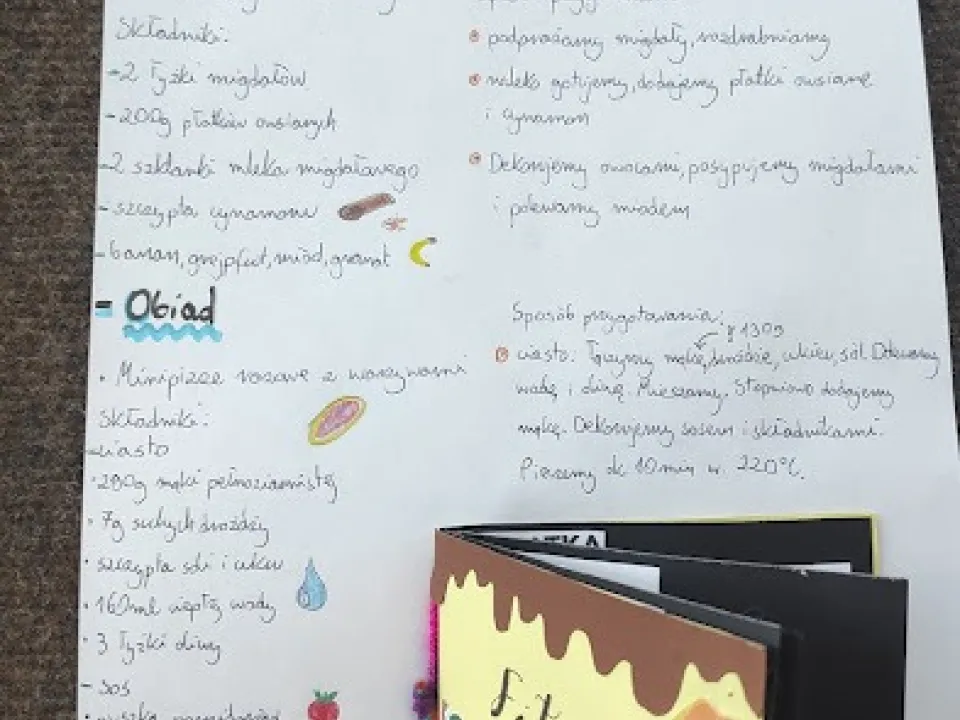 Składniki:
-2 łyżki migdałów
-200g płatków owsianych
-2 szklanki mleka migdałowego
-szczypta cynamonu
-banan, grejpfrut, miód, granat
- Obiad
• Minipizze razowe z warzywami
Składniki:
-ciasto
•280g mąki pełnoziarnistej
• 7g suchych drożdży
• szczypta soli i cukru
• 160ml ciepłej wody
• 3 łyżki oliwy
- sos
podprażamy migdały, rozdrabniamy
mleko gotujemy, dodajemy płatki owsiane
i cynamon
Dekorujemy owocami, posypujemy migdałami
i polewamy miodem
Sposób przygotowania:
130g
ciasto: Łączymy mąkę, drożdże, cukier, sól. Dolewamy
wodę i oliwę. Mieszamy. Stopniowo dodajemy
mąkę. Dekorujemy sosem i składnikami.
Pieczemy ok 10min w 220°C.
Fit